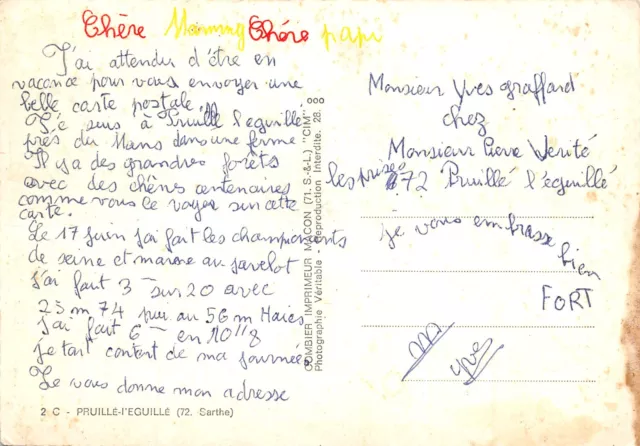 Chère Mamny Chére papi
J'ai attendu d'être en
vacance pour vous envoyer une
belle carte postale.
Je suis à Pruillé l'eguillé
près du Mans dans une ferme
Il y a des grandres forêts
avec des chênes centenaires
comme vous le voyer sur cette
carte.
Le 17 juin j'ai fait les championants
de seine et marne au javelot
j'ai fait 3 sur 20 avec
23 m 74 puis au 50 m Haies
j'ai fait 6 en 10"8
je tait content de ma journée
Je vous donne mon adresse
2 C - PRUILLÉ-l'EGUILLÉ (72. Sarthe)
COMBIER IMPRIMEUR MACON (71. S.-&-L.) "CIM"
Photographie Véritable - Reproduction Interdite. 28.
Monsieur Yves graffard
chez
Monsieur Pierre Verité
les prisé 72 Pruillé l'éguillé
je vous embrasse bien
FORT
yves